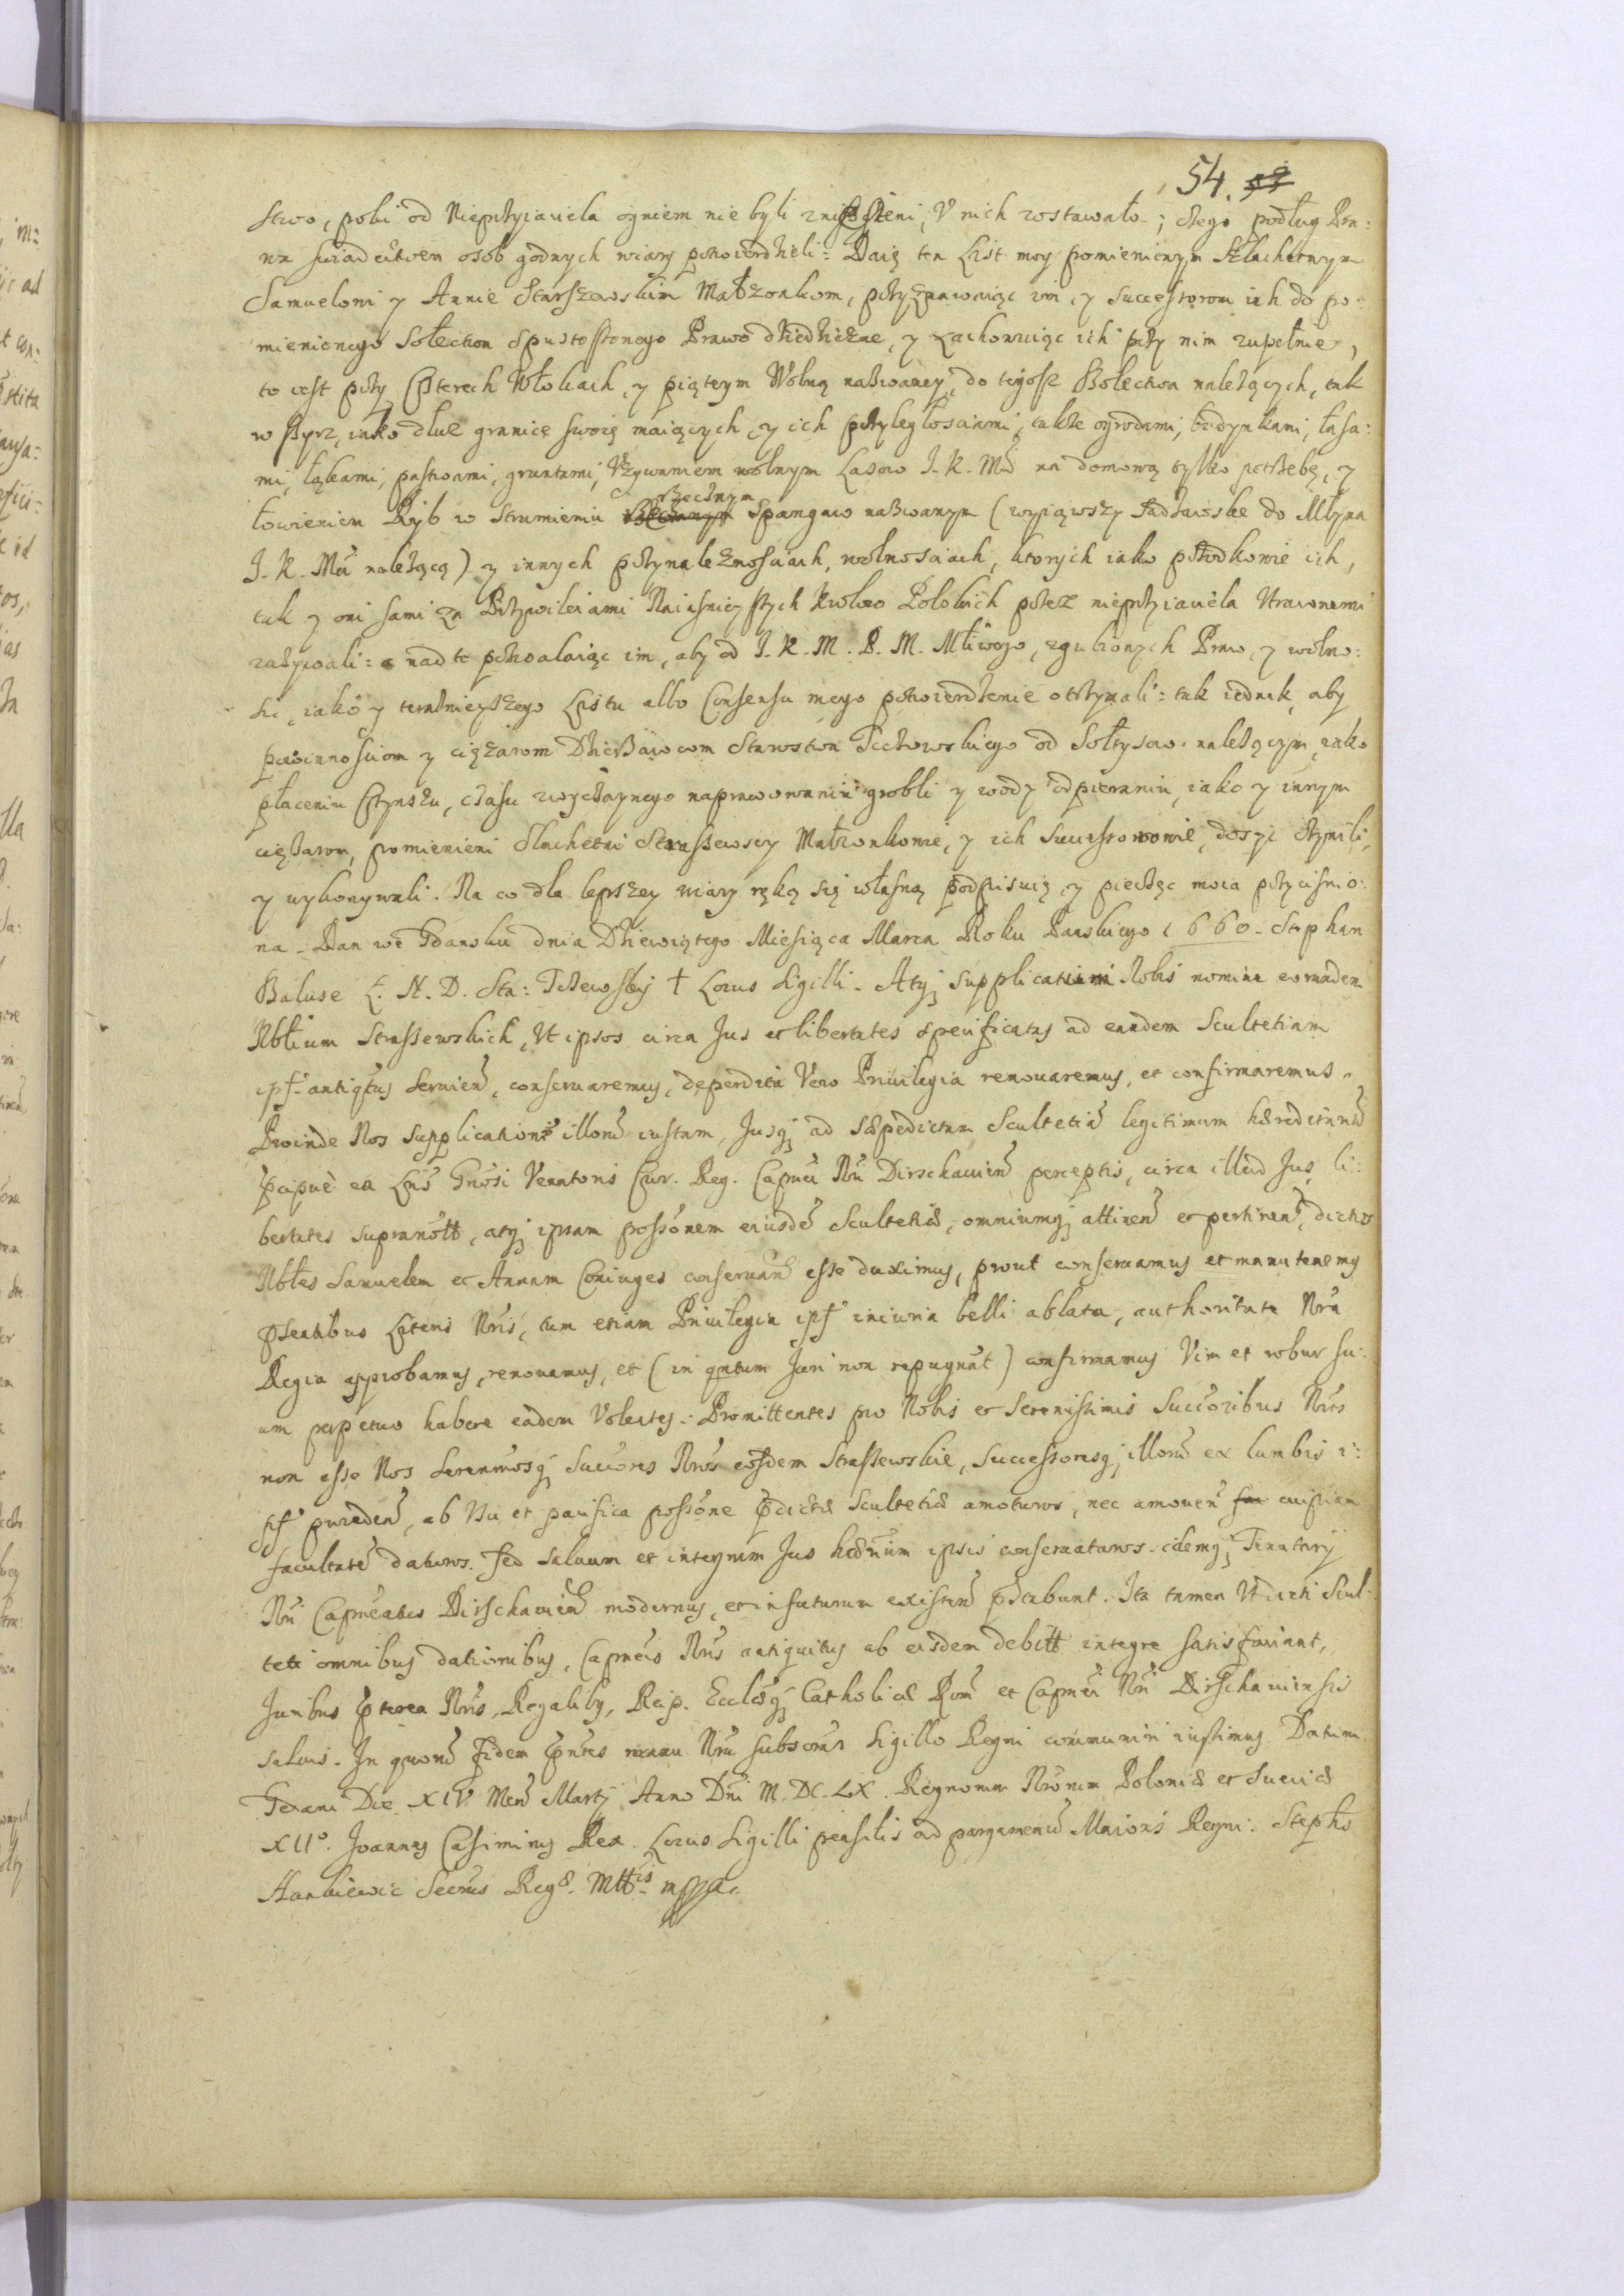 54. 52
stwo, poki od Nieprzyiaciela ogniem nie byli zniszczeni, V nich zostawało; czego podług Pra:
wa swiadectwem osob godnych wiary potwierdzieli: Daię ten List moy pomienionym Szlachetnym
Samuelowi y Annie Starszewskim Małżonkom, przyznawaiąc im y successorom ich do po:
mienionego Sołectwa Spustoszonego Prawo dziedziczne, y zachowuiąc ich przy nim zupełnie,
to iest przy Czterech Włokach, y piątym Wolną nazwaney, do tegosz Sołectwa należących, tak
w szyrz, iako dłuż granice swoię maiących, y ich przyległosciami, także ogrodami, budynkami, lasa:
mi, łąkami, pastwami, gruntami, Vżywaniem wolnym Lasow J. K. Mći na domową tylko potrzebę, y
łowieniem Ryb w Strumieniu rzecznym Spangaw nazwanym (wyiąwszy Sadzawkę do Młyna
J. K. Mći należącą) y innych przynależnosciach, wolnosciach, ktorych iako przodkowie ich,
tak y oni sami za Przywileiami Naiasnieyszych Krolow Polskich przez nieprzyiaciela Vtraconemi
zażywali: nad to pozwalaiąc im, aby od J. K. M. P. M. Młciwego, zgubionych Praw, y wolno:
sci, iako y teraznieyszego Listu albo Consensu mego potwierdzenie otrzymali: tak iednak, aby
powinnosciom y ciężarom Dzierżawcom Starostwa Tczewskiego od Sołtysow należącym, iako
płaceniu Czynszu, czasu zwyczaynego naprawowaniu grobli y wody odpieraniu, iako y innym
ciężarom, pomienieni Slachetni Strassewscy Małżonkowie, y ich Successorowie, dosyc czynili,
y wykonywali. Na co dla lepszey wiary ręką się własną podpisuię, y pieczęc moia przycisnio:
na. Dan we Gdansku dnia Dziewiątego Miesiąca Marca Roku Panskiego 1660. Stephan
Baluse Sta: Tczewsky † Locus Sigilli. Atqz supplicatum Nobis nomine eorundem
Nblium Strassewskich, Vt ipsos circa Jus et libertates specificatas ad eandem Scultetiam
ips. antiqtus servien, conservaremus, deperdita Vero Priuilegia renouaremus, et confirmaremus.
Proinde Nos supplicatione illoru iustam, Jusqz ad sæpedictam Scultetia legitimum hæreditariu
pcipue ex Lris Gnosi Venatoris Cur. Reg. Capnei Nri Dirschauien perceptis, circa illud Jus, li:
bertates supranott, atqz ipsam possonem eiusde Scultetiæ, omniumqz attinen et pertinen, dictos
Nbles Samuelem et Annam Coniuges conseruan esse duximus, prout conseruamus et manutenemus
psentibus Lateris Nris, tum etiam Priuilegia ips iniuria belli ablata, authoritate Nra
Regia approbamus, renouamus, et (in qntum Juri non repugnat) confirmamus Vim et robur su:
um perpetuo habere eadem Volentes. Promittentes pro Nobis et Serenissimis Succoribus Nris
non esse Nos Serenmosqz Succores Nros eosdem Strassewskie, Successoresqz illoru ex lumbis i:
ps proceden, ab Vsu et pacifica possone pdictæ Scultetiæ amoturos, nec amouen cuipiam
facultate daturos. sed saluum et integrum Jus hæduum ipsis conseruaturos. idemqz Tenutary
Nri Capneatus Dirschauien modernus, et in futurum existen pstabunt. Ita tamen Vt dicti Scul:
teti omnibus dationibus, Capneis Nris antiquitus ab eisdem debitt integre satisfaciant,
Juribus pterea Nris, Regalibz, Reip. Ecclæqz Catholicæ Rom et Capnei Nri Dirschauiensis
saluis. In quoru fidem pntes manu Nra subscras Sigillo Regni communiri iussimus. Datum
Gedani Die XIV Mens Marty Anno Dni M. DC. LX. Regnorum Nrorum Poloniæ et Sueciæ
XII°. Joannes Casimirus Rex. Locus Sigilli pensilis ad pargamenu Maioris Regni. Stephs
Hankiewic Secrius Regæ. Mttis mppa.